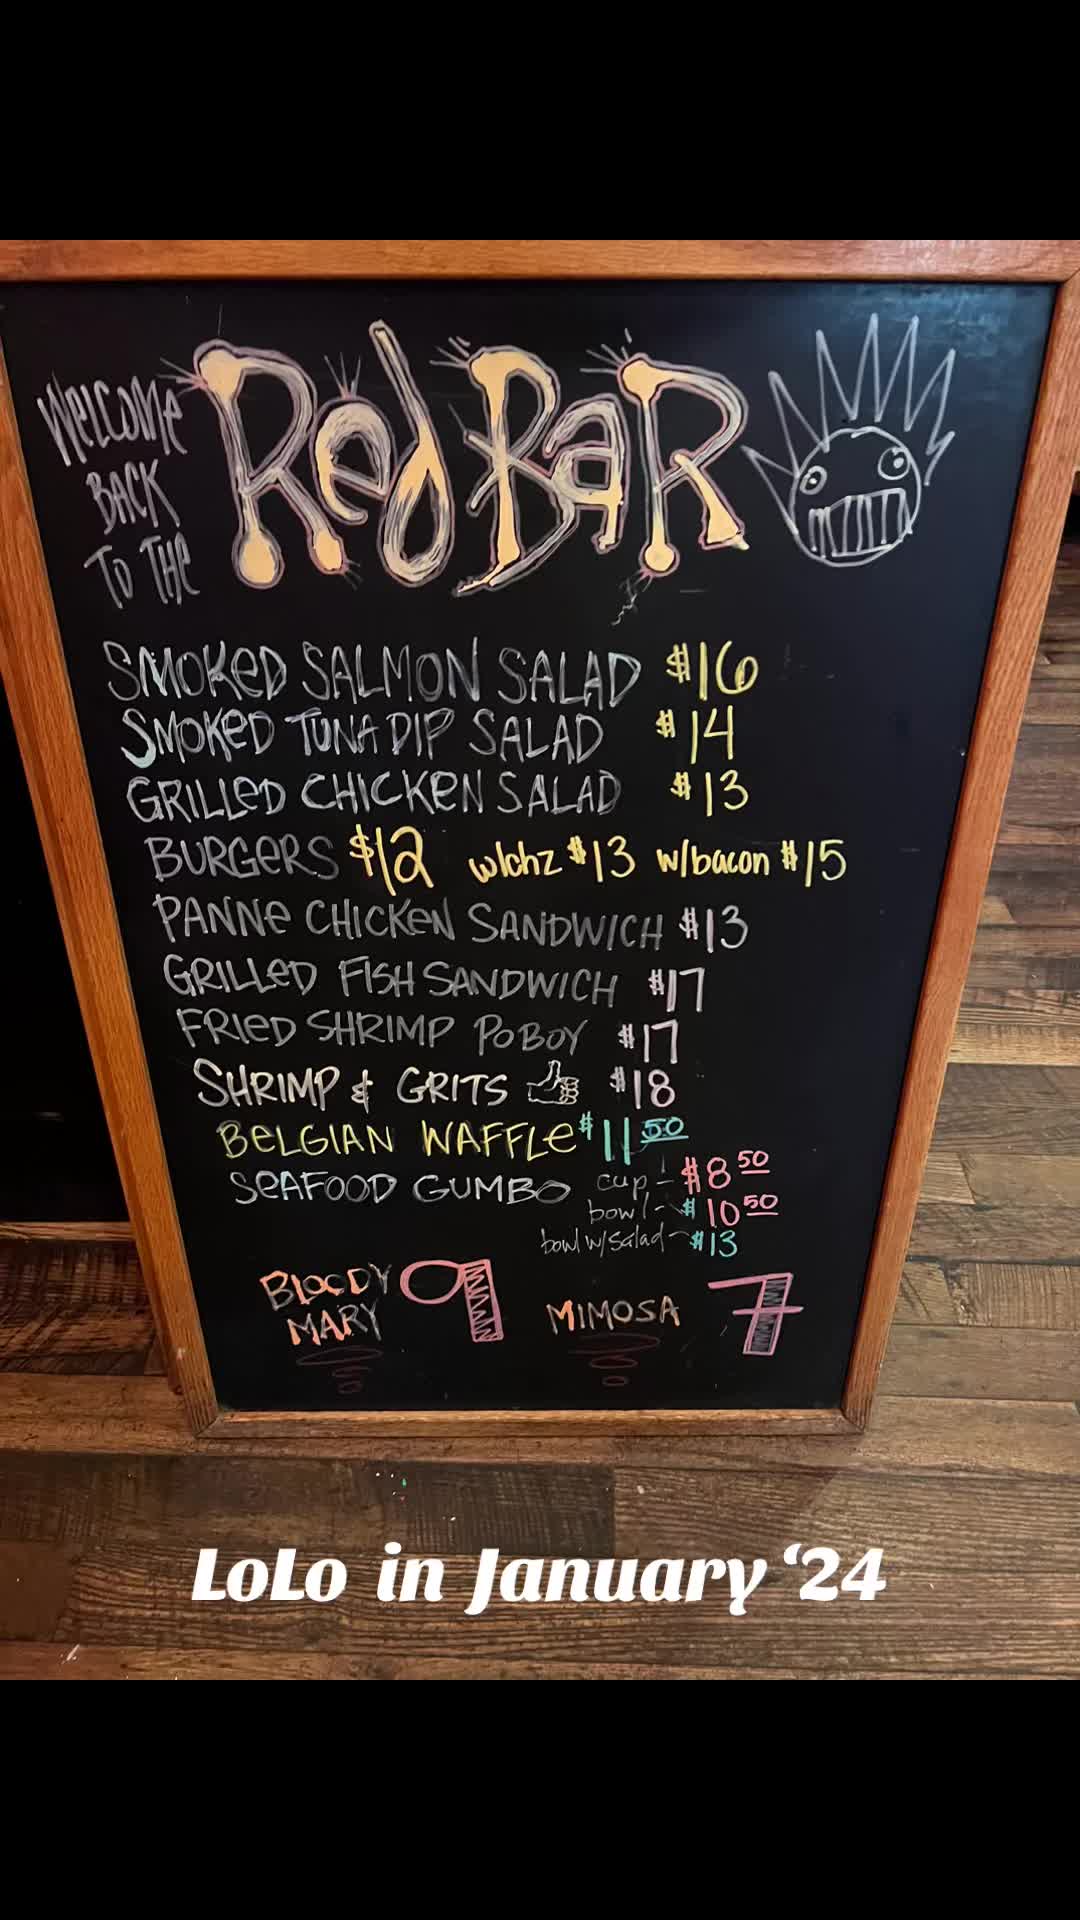 WELCOME
BACK
TO THE
Red BaR
SMOKED SALMON SALAD $16
SMOKED TUNA DIP SALAD $14
GRILLED CHICKEN SALAD $13
BURGERS $12 w/chz $13 w/bacon $15
PANNE CHICKEN SANDWICH $13
GRILLED FISH SANDWICH $17
FRIED SHRIMP POBOY $17
SHRIMP & GRITS $18
BELGIAN WAFFLE $11 50
SEAFOOD GUMBO cup - $8 50
bowl - $10 50
bowl w/salad - $13
BLOODY MARY 9
MIMOSA 7
LoLo in January ‘24